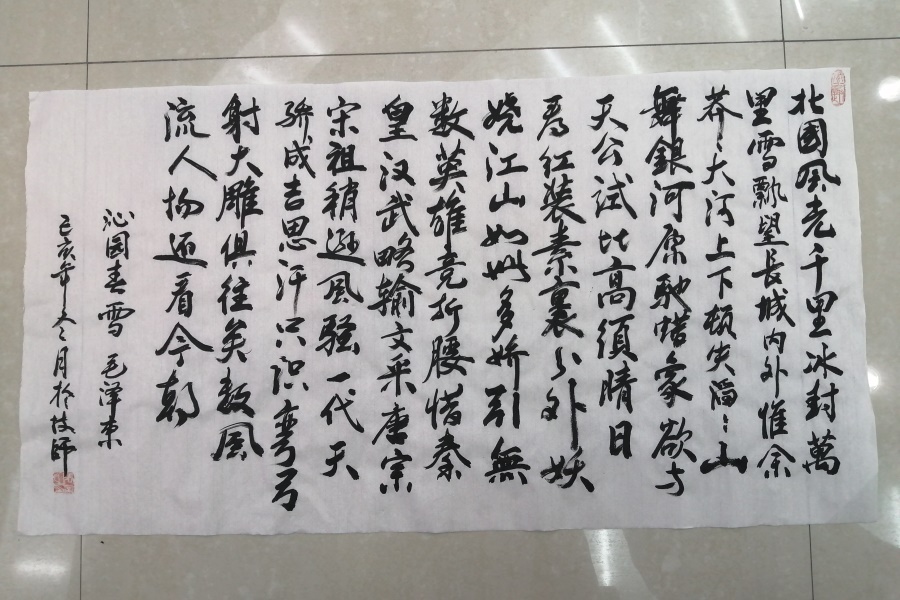 北國風光千里冰封萬
里雪飄望長城内外惟余
莽々大河上下顿失滔々山
舞銀河原馳蜡象欲与
天公試比高須晴日
看红装素裹分外妖
娆江山如此多娇引無
数英雄竞折腰惜秦
皇汉武略输文采唐宗
宋祖稍逊風骚一代天
骄成吉思汗只识弯弓
射大雕俱往矣数風
流人物还看今朝
沁园春雪 毛泽东
己亥年冬月於技師